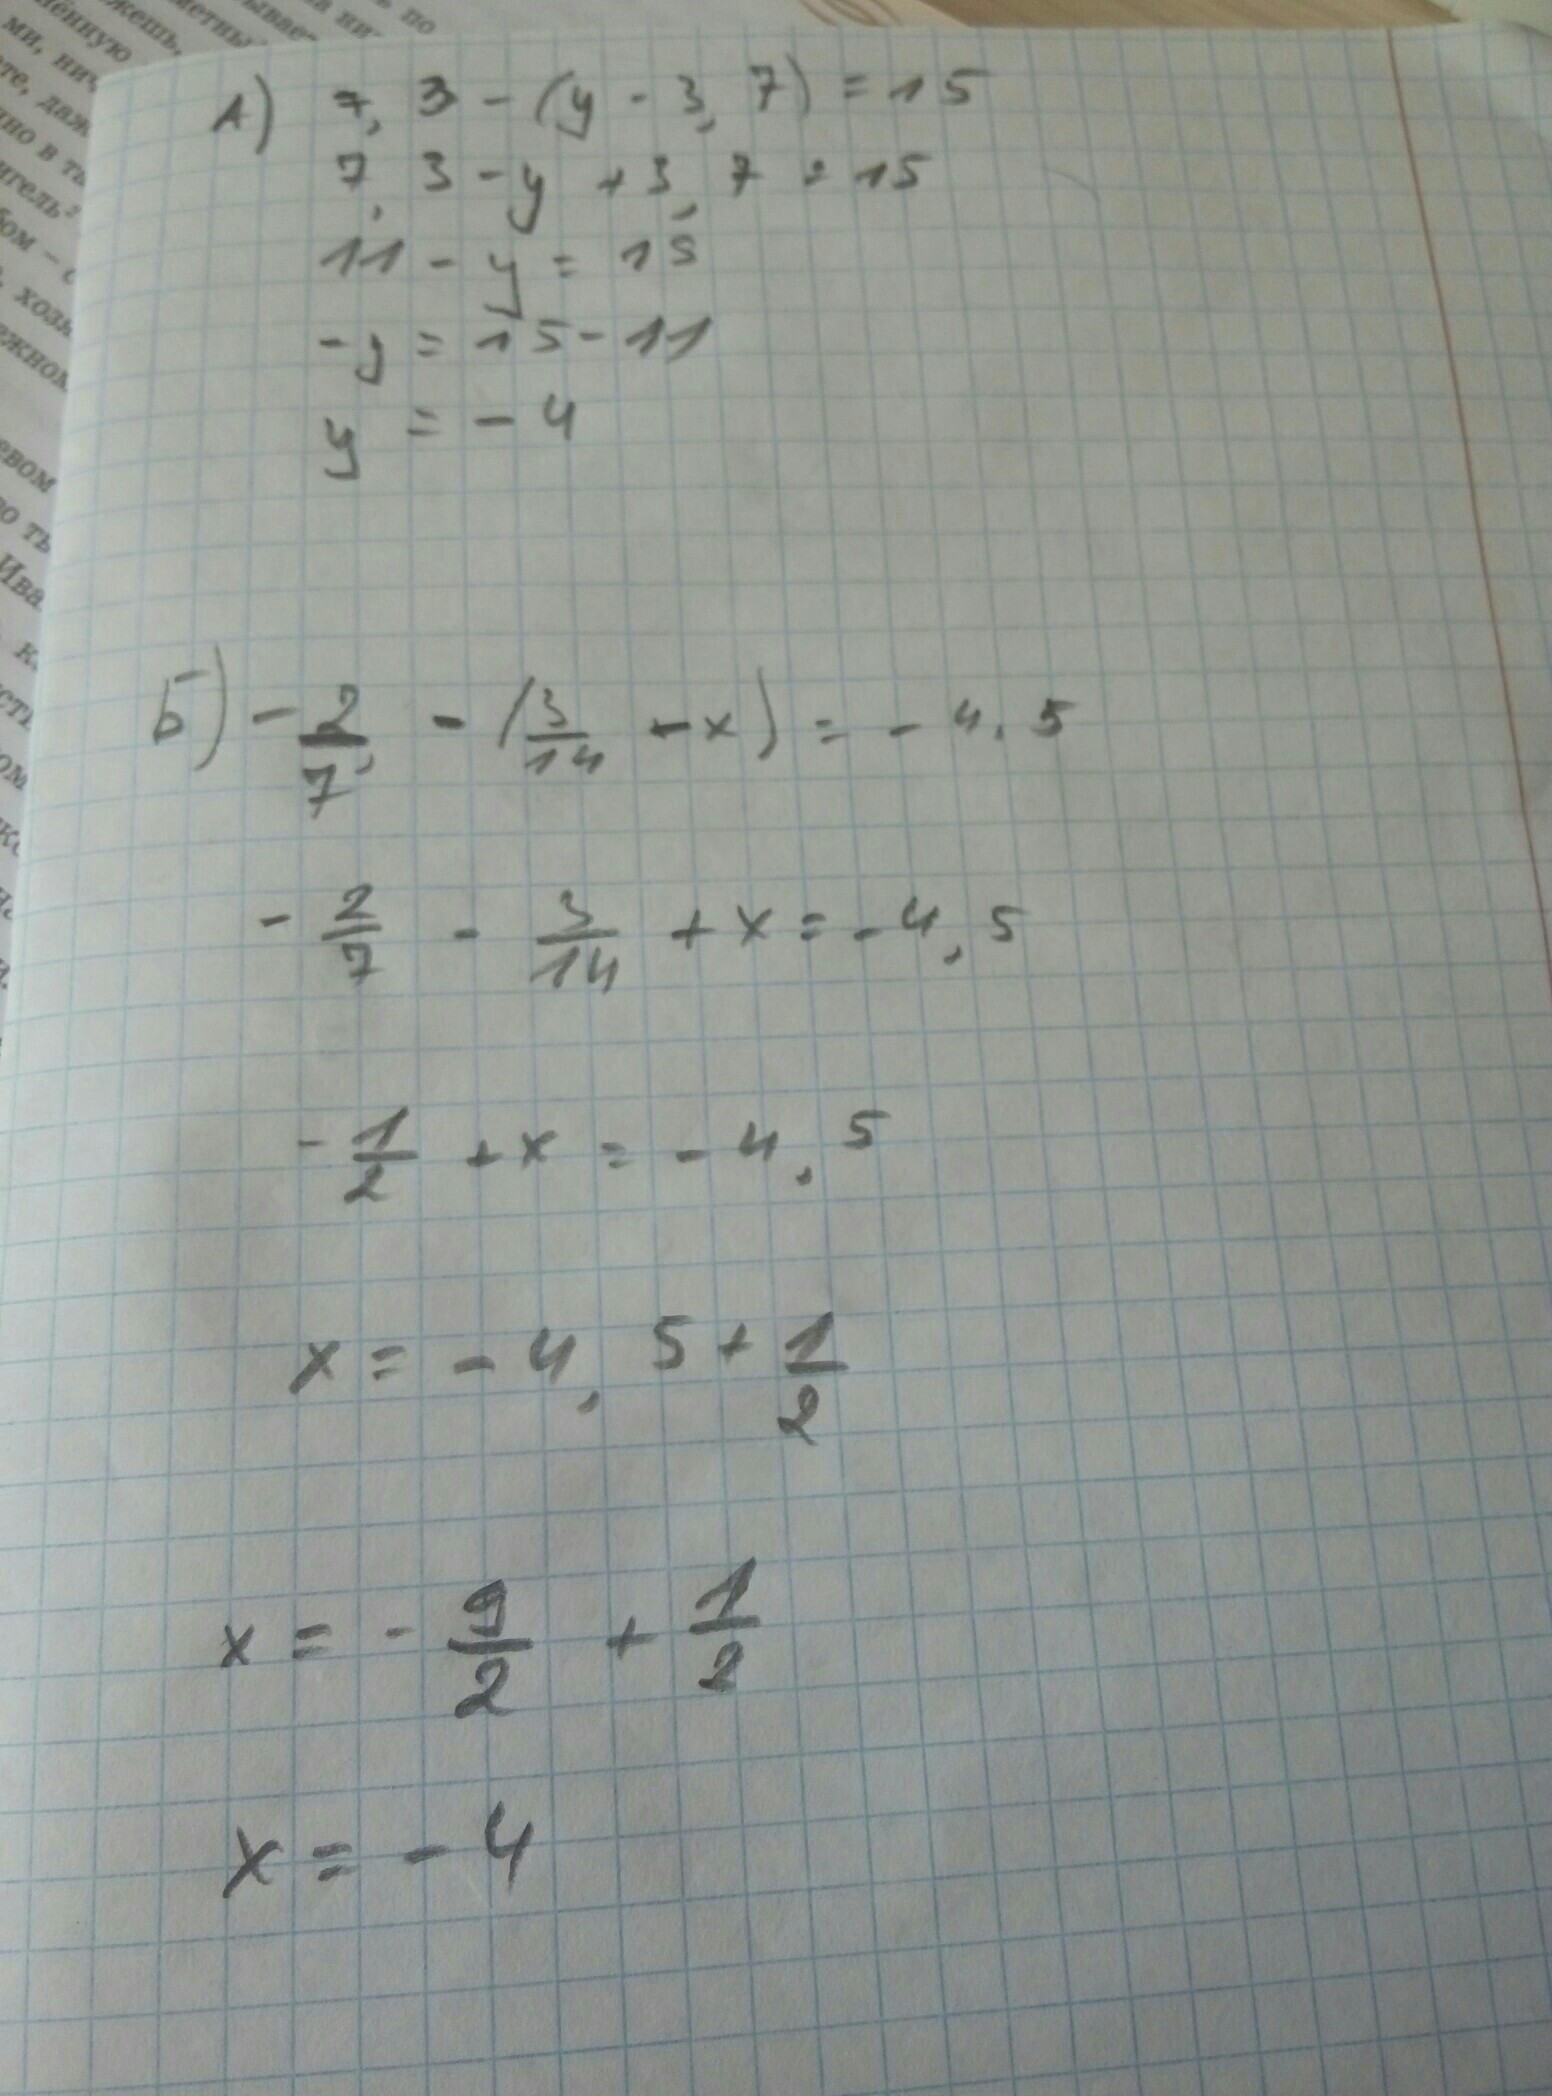 по
жешь,
ми, нич
те, даж
ежном
евом
Ива
А) 7,3 - (y - 3,7) = 15
7,3 - y + 3,7 = 15
11 - y = 15
-y = 15 - 11
y = - 4
Б) - 2/7 - (3/14 - x) = - 4,5
- 2/7 - 3/14 + x = - 4,5
- 1/2 + x = - 4,5
x = - 4,5 + 1/2
x = - 9/2 + 1/2
x = - 4